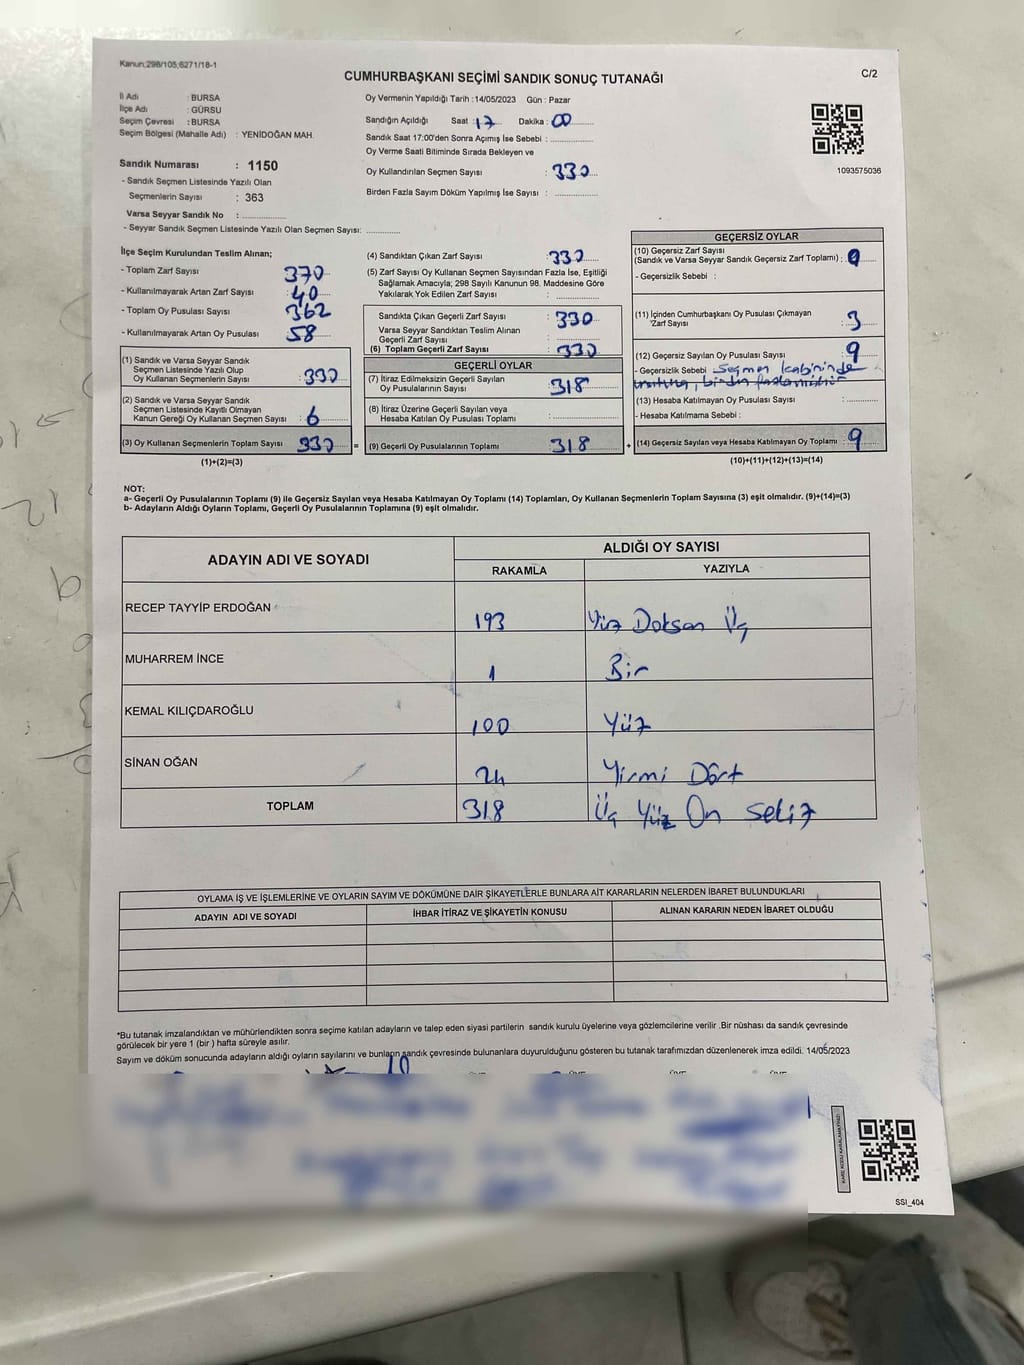 Kanun;298/105;6271/18-1
C/2
CUMHURBAŞKANI SEÇİMİ SANDIK SONUÇ TUTANAĞI
İl Adı : BURSA
İlçe Adı : GÜRSU
Seçim Çevresi : BURSA
Seçim Bölgesi (Mahalle Adı) : YENİDOĞAN MAH.
Sandık Numarası : 1150
- Sandık Seçmen Listesinde Yazılı Olan
Seçmenlerin Sayısı : 363
Varsa Seyyar Sandık No : ..............
- Seyyar Sandık Seçmen Listesinde Yazılı Olan Seçmen Sayısı: ............
Oy Vermenin Yapıldığı Tarih :14/05/2023 Gün : Pazar
Sandığın Açıldığı Saat : 17 Dakika : 00
Sandık Saat 17:00'den Sonra Açımış İse Sebebi : ..............
Oy Verme Saati Bitiminde Sırada Bekleyen ve
Oy Kullandırılan Seçmen Sayısı : 330
Birden Fazla Sayım Döküm Yapılmış İse Sayısı : ..............
1093575036
İlçe Seçim Kurulundan Teslim Alınan;
- Toplam Zarf Sayısı 370
- Kullanılmayarak Artan Zarf Sayısı : 40
- Toplam Oy Pusulası Sayısı : 362
- Kullanılmayarak Artan Oy Pusulası : 58
(1) Sandık ve Varsa Seyyar Sandık
Seçmen Listesinde Yazılı Olup
Oy Kullanan Seçmenlerin Sayısı : 330
(2) Sandık ve Varsa Seyyar Sandık
Seçmen Listesinde Kayıtlı Olmayan
Kanun Gereği Oy Kullanan Seçmen Sayısı : 6
(3) Oy Kullanan Seçmenlerin Toplam Sayısı : 330
(1)+(2)=(3)
(4) Sandıktan Çıkan Zarf Sayısı : 330
(5) Zarf Sayısı Oy Kullanan Seçmen Sayısından Fazla İse, Eşitliği
Sağlamak Amacıyla; 298 Sayılı Kanunun 98. Maddesine Göre
Yakılarak Yok Edilen Zarf Sayısı : ..............
Sandıkta Çıkan Geçerli Zarf Sayısı : 330
Varsa Seyyar Sandıktan Teslim Alınan
Geçerli Zarf Sayısı : ..............
(6) Toplam Geçerli Zarf Sayısı : 330
GEÇERLİ OYLAR
(7) İtiraz Edilmeksizin Geçerli Sayılan
Oy Pusulalarının Sayısı : 318
(8) İtiraz Üzerine Geçerli Sayılan veya
Hesaba Katılan Oy Pusulası Toplamı : ..............
= (9) Geçerli Oy Pusulalarının Toplamı : 318
GEÇERSİZ OYLAR
(10) Geçersiz Zarf Sayısı
(Sandık ve Varsa Seyyar Sandık Geçersiz Zarf Toplamı) :
- Geçersizlik Sebebi :
(11) İçinden Cumhurbaşkanı Oy Pusulası Çıkmayan
Zarf Sayısı : 3
(12) Geçersiz Sayılan Oy Pusulası Sayısı : 9
- Geçersizlik Sebebi : Seçmen kabininde
(13) Hesaba Katılmayan Oy Pusulası Sayısı : ..............
- Hesaba Katılmama Sebebi :
+ (14) Geçersiz Sayılan veya Hesaba Katılmayan Oy Toplamı : 9
(10)+(11)+(12)+(13)=(14)
NOT:
a- Geçerli Oy Pusulalarının Toplamı (9) ile Geçersiz Sayılan veya Hesaba Katılmayan Oy Toplamı (14) Toplamları, Oy Kullanan Seçmenlerin Toplam Sayısına (3) eşit olmalıdır. (9)+(14)=(3)
b- Adayların Aldığı Oyların Toplamı, Geçerli Oy Pusulalarının Toplamına (9) eşit olmalıdır.
ADAYIN ADI VE SOYADI ALDIĞI OY SAYISI
RAKAMLA YAZIYLA
RECEP TAYYİP ERDOĞAN 193 Yüz Doksan Üç
MUHARREM İNCE 1 Bir
KEMAL KILIÇDAROĞLU 100 Yüz
SİNAN OĞAN 24 Yirmi Dört
TOPLAM 318 Üç Yüz On Sekiz
OYLAMA İŞ VE İŞLEMLERİNE VE OYLARIN SAYIM VE DÖKÜMÜNE DAİR ŞİKAYETLERLE BUNLARA AİT KARARLARIN NELERDEN İBARET BULUNDUKLARI
ADAYIN ADI VE SOYADI İHBAR İTİRAZ VE ŞİKAYETİN KONUSU ALINAN KARARIN NEDEN İBARET OLDUĞU
*Bu tutanak imzalandıktan ve mühürlendikten sonra seçime katılan adayların ve talep eden siyasi partilerin sandık kurulu üyelerine veya gözlemcilerine verilir .Bir nüshası da sandık çevresinde
görülecek bir yere 1 (bir ) hafta süreyle asılır.
Sayım ve döküm sonucunda adayların aldığı oyların sayılarını ve bunların sandık çevresinde bulunanlara duyurulduğunu gösteren bu tutanak tarafımızdan düzenlenerek imza edildi. 14/05/2023
SSI_404